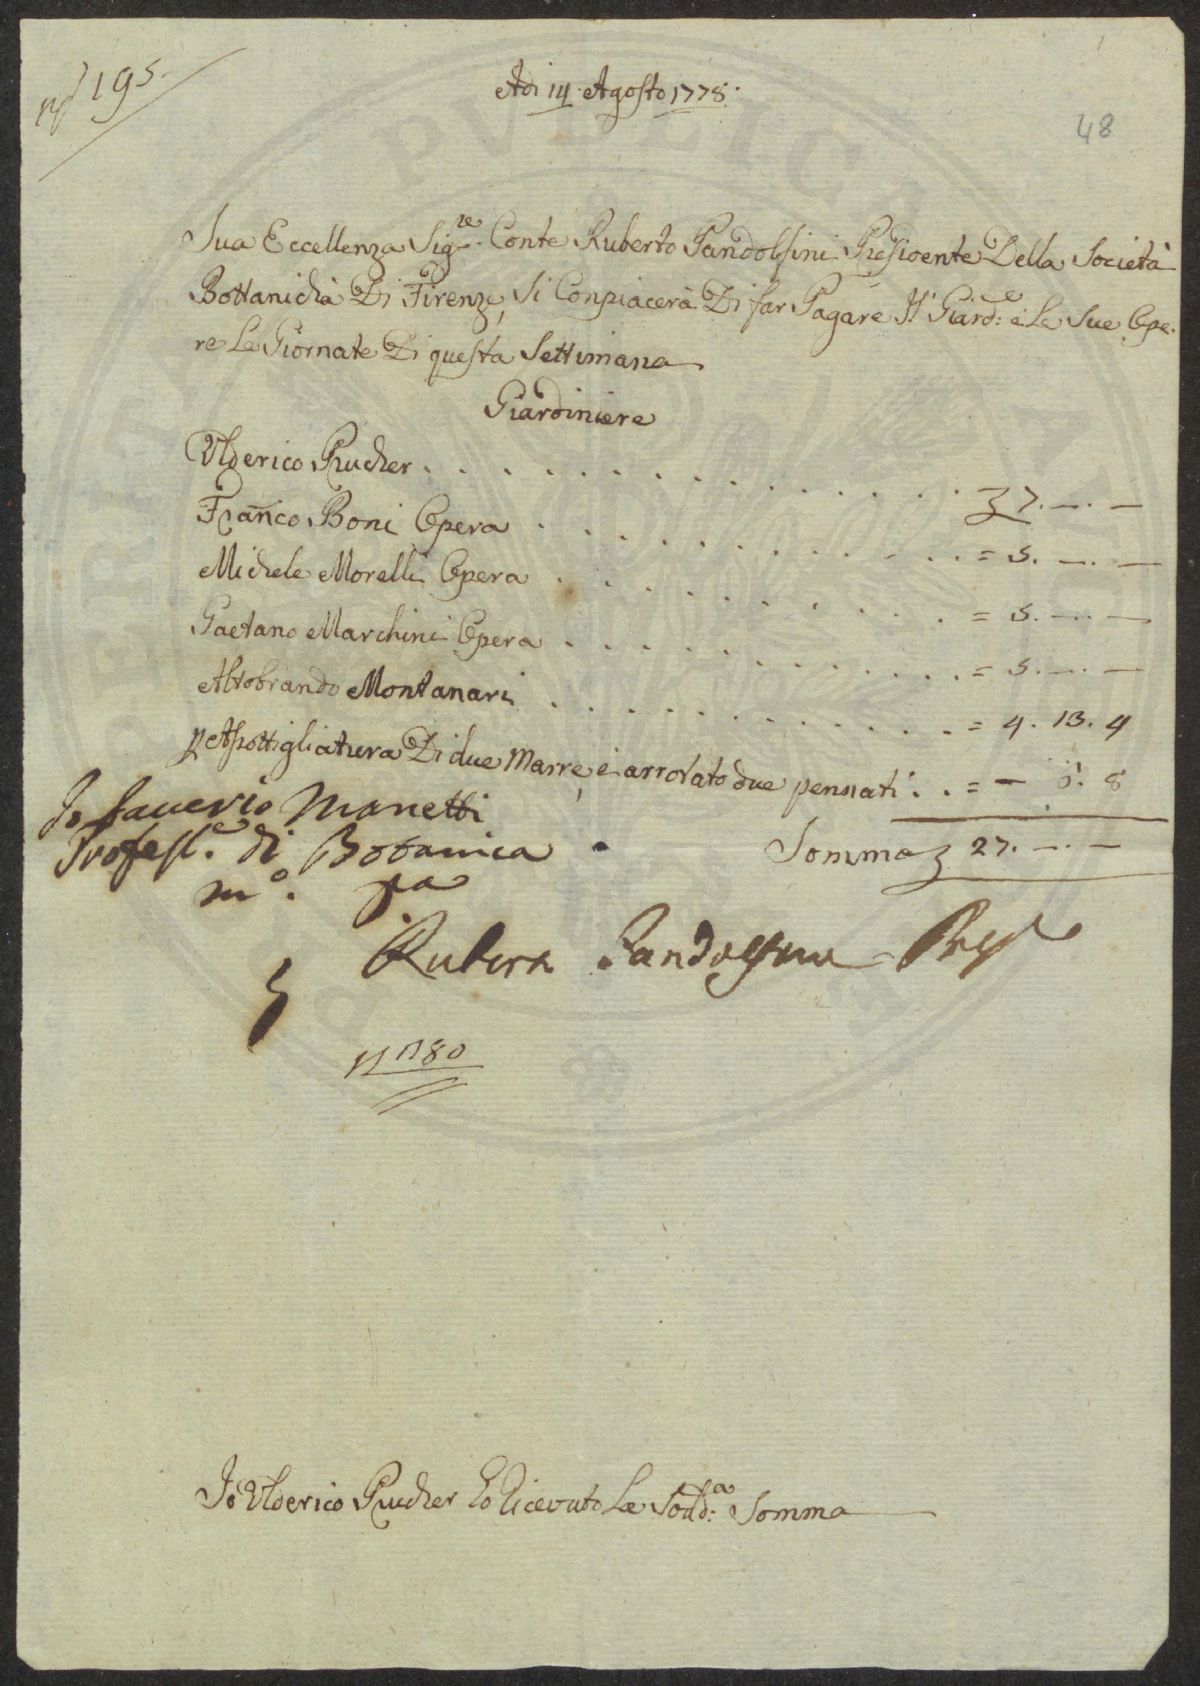 N° 195.
Adi 14. Agosto 1778.
48
Sua Eccellenza Sig.re Conte Ruberto Pandolfini Presidente Della Società
Bottanicha Di Firenze, Si Conpiacerà Di far Pagare Il Giard.e e Le Sue Ope-
re Le Giornate Di questa Settimana
Giardiniere
Ulderico Prucher . . . . . . . . . . . . . . £ 7. —. —
Franco Boni Opera . . . . . . . . . . . = 5. —. —
Michele Morelli Opera . . . . . . . . . = 5. —. —
Gaetano Marchini Opera . . . . . . . . . . = 5. —. —
Altobrando Montanari . . . . . . . . . . . = 4. 13. 4
p Aspottigliatura Di due Marre, e arrotato due pennati . . . = — 6. 8
Somma £ 27. —. —
Io Saverio Manetti
Profess.e di Botanica
m.o pa
Ruberto Pandolfini Pres
N 180
Io Ulderico Prucher ho Ricevuto La Sodd.a Somma